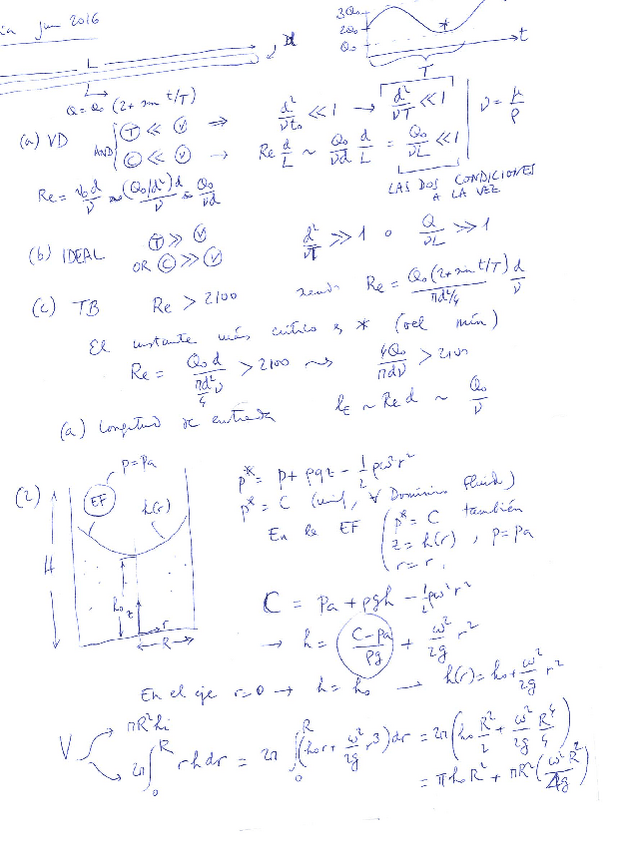 jun 2016
3Q₀
2Q₀
Q₀
*
t
T
L
d
Q = Q₀ (2 + sin t/T)
(a) VD AND { (T) << (V) ⇒ d²/νt₀ << 1 → d²/νT << 1 | ν = μ/ρ
(C) << (V) → Re d/L ~ Q₀/νd d/L = Q₀/νL << 1
LAS DOS CONDICIONES
A LA VEZ
Re = v₀d/ν ~ (Q₀/d²)d/ν = Q₀/νd
(b) IDEAL (T) >> (V) d²/νT >> 1 o Q/νL >> 1
OR (C) >> (V)
(c) TB Re > 2100 siendo Re = Q₀(2+sin t/T)/(πd²/4) d/ν
El instante más crítico es * (vel mín)
Re = Q₀ d/(πd²/4 ν) > 2100 ⇝ 4Q₀/πdν > 2100
(a) Longitud de entrada l_E ~ Re d ~ Q₀/ν
(2)
p = Pa
EF
h(r)
H
h₀
z
r
R
p* = p + ρgz − ½ρω²r²
p* = C (unif, ∀ Dominio Fluid)
En la EF { p* = C también
z = h(r), p = pa
r = r
C = Pa + ρgh − ½ρω²r²
→ h = (C − pa)/ρg + ω²/2g r²
En el eje r=0 → h = h₀ → h(r) = h₀ + ω²/2g r²
V → πR²hi
2π∫₀ᴿ r h dr = 2π ∫₀ᴿ (h₀r + ω²/2g r³)dr = 2π(h₀ R²/2 + ω²/2g R⁴/4)
= πh₀R² + πR²(ω²R²/4g)